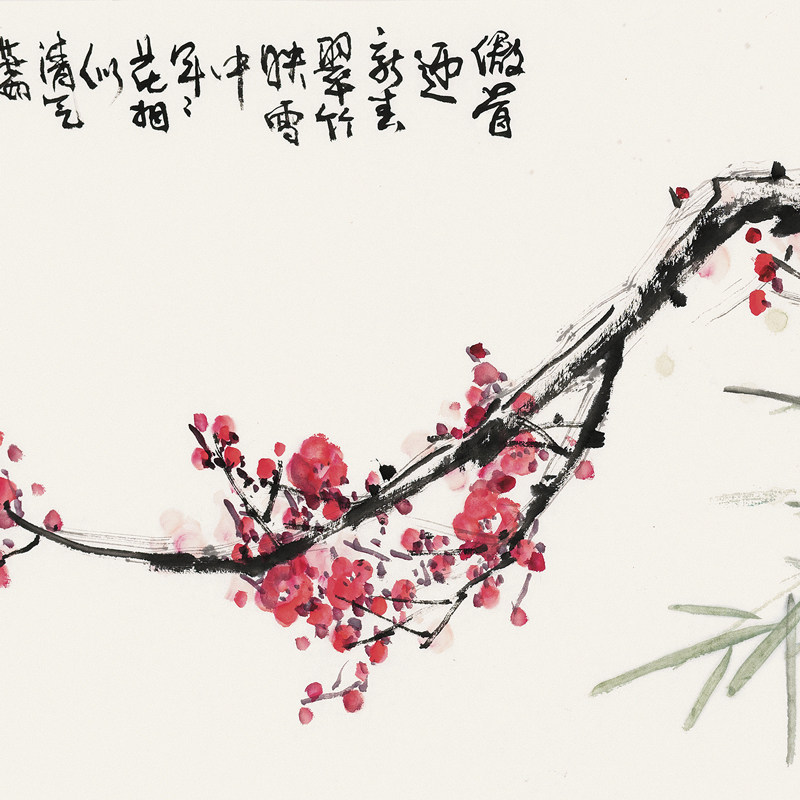 傲首
迎
新春
翠竹
映雪
中
年々
花相
似
清气